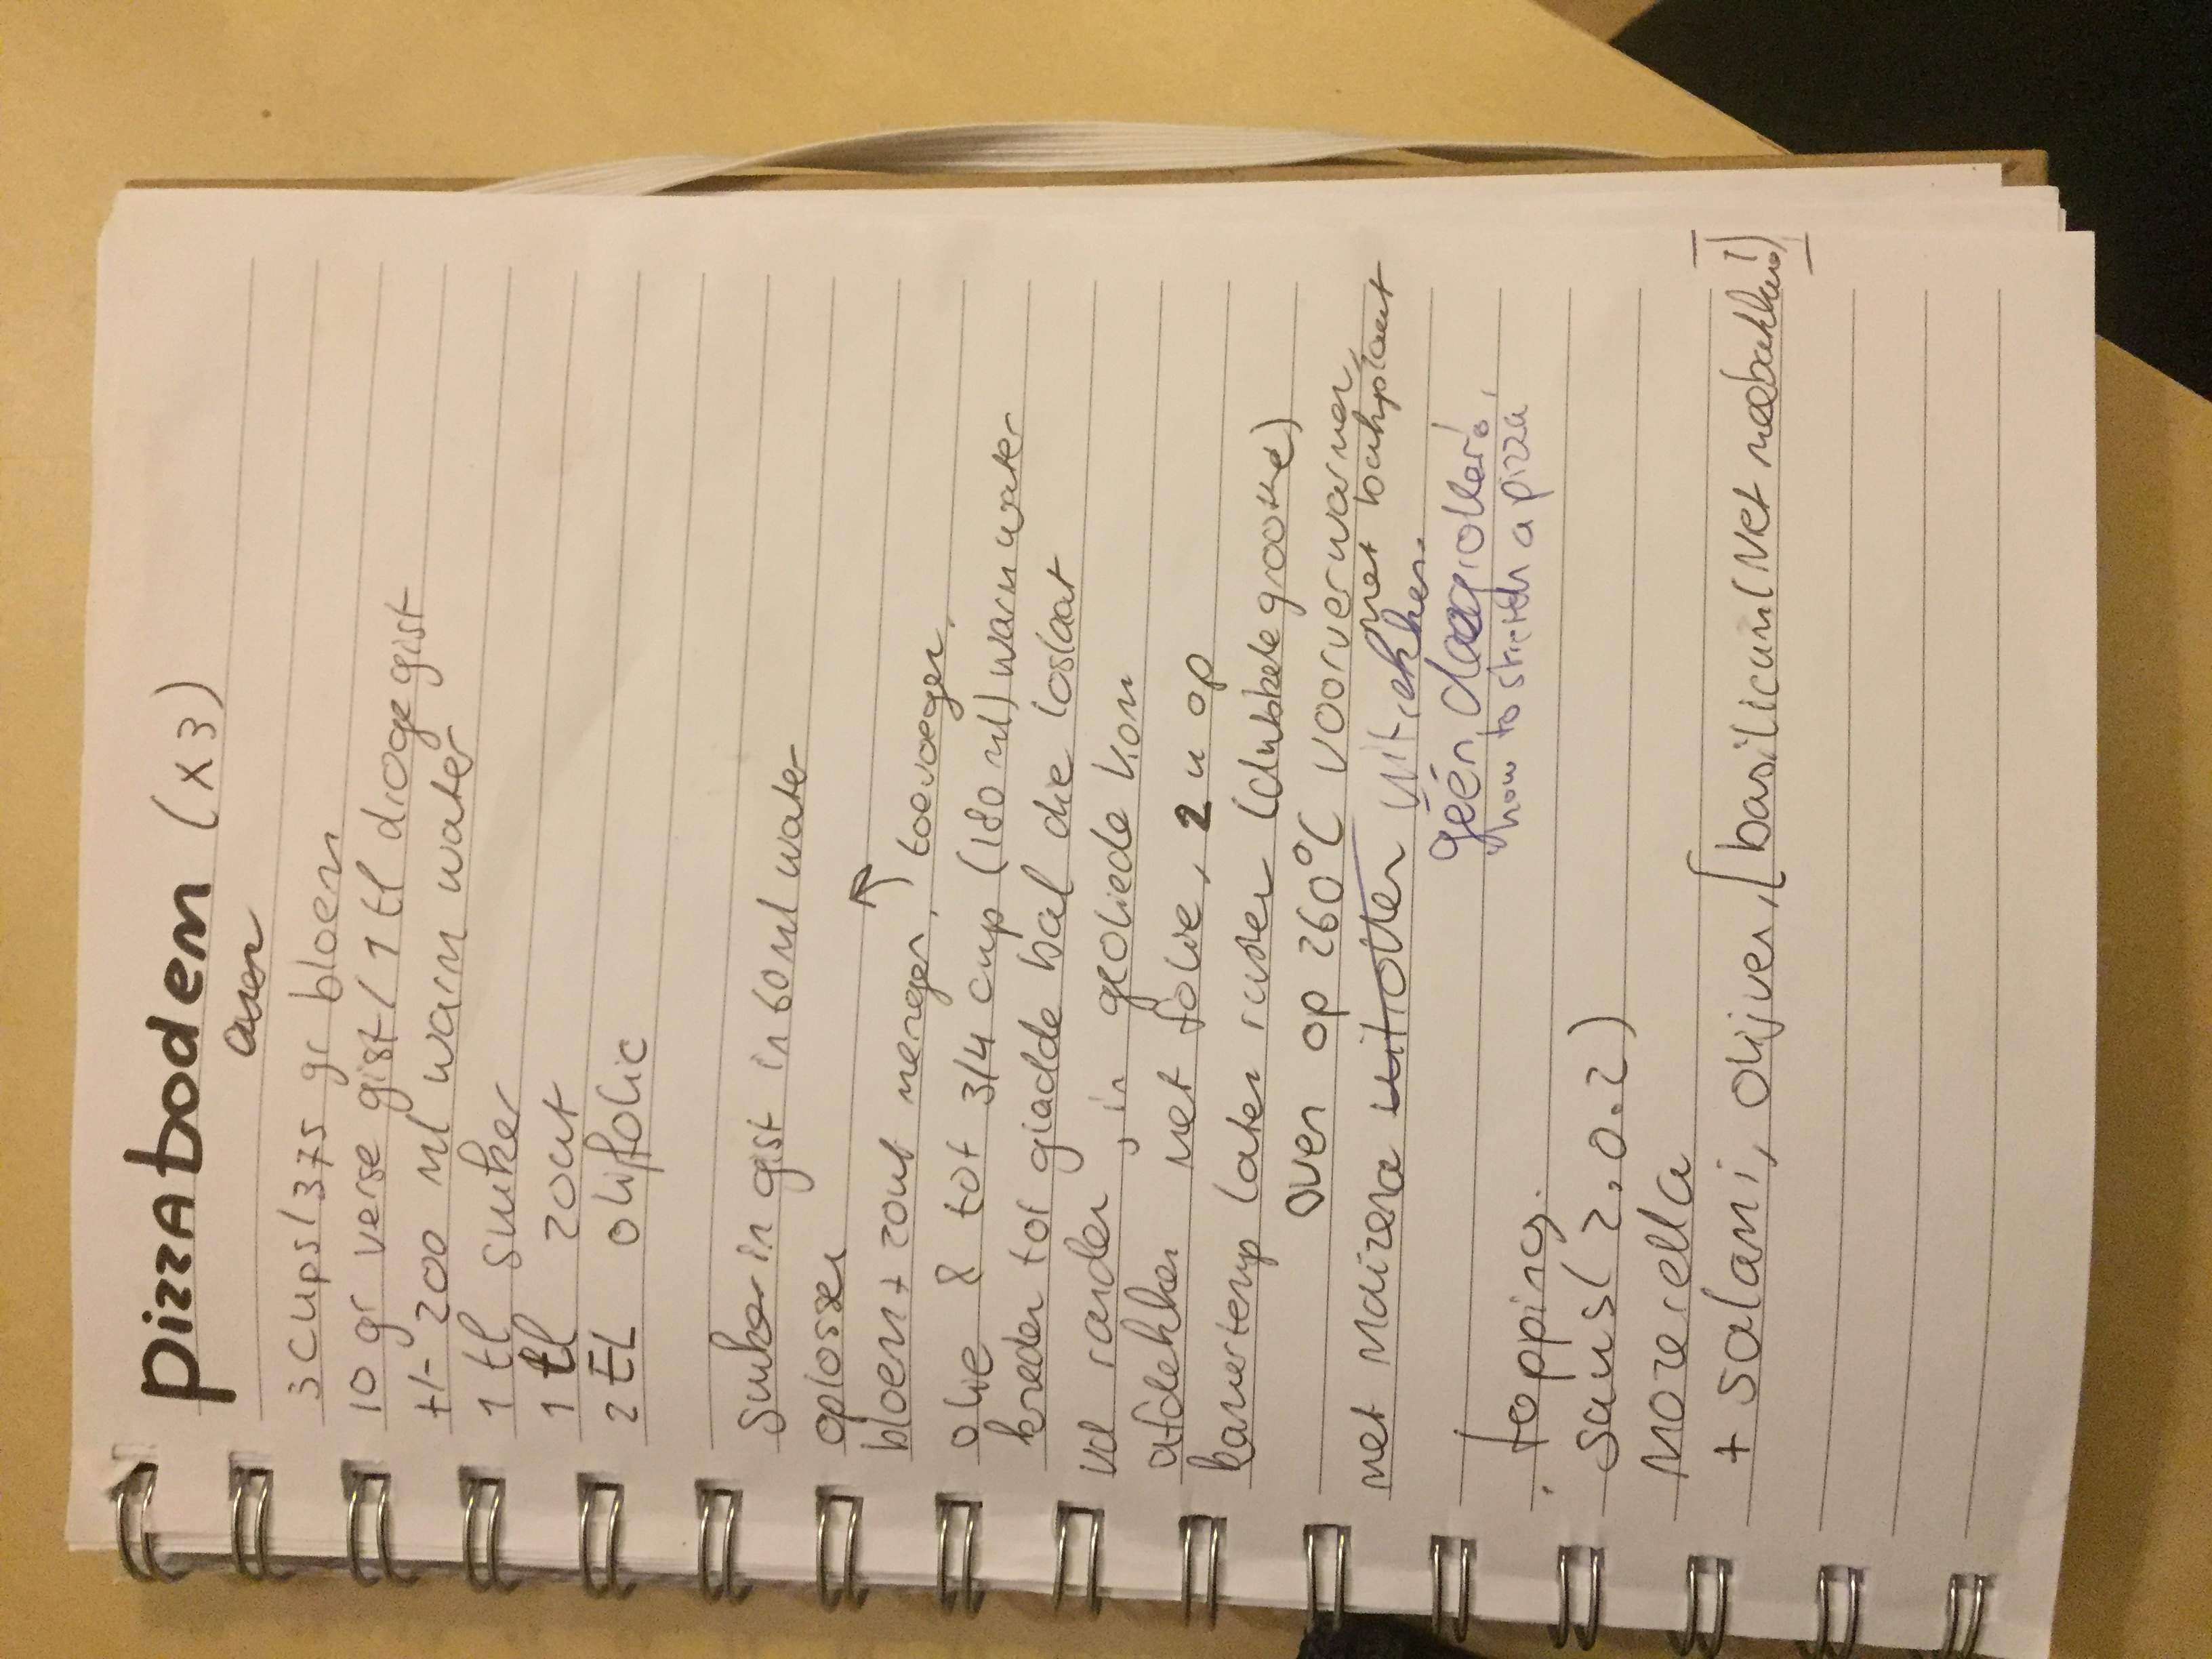 pizzAbodem (x3)
oven
3 cups/375 gr bloem
10 gr verse gist/1 tl droge gist
+/- 200 ml warm water
1 tl suiker
1 tl zout
2 EL olijfolie
suiker in gist in 60 ml water
oplossen
bloem + zout mengen, ↑ toevoegen,
olie & tot 3/4 cup (180 ml) warm water
kneden tot gladde bal die loslaat
vd randen, in geoliede kom
afdekken met folie, 2 u op
kamertemp laten rusten (dubbele grootte)
oven op 260°C voorverwarmen,
met bakplaat
met Maizena uitrollen uitrekken.
géén deegroller!
"how to stretch a pizza
topping.
saus (z.o.z)
Mozerella
+ salami, olijven, [basilicum (Niet meebakken!)]